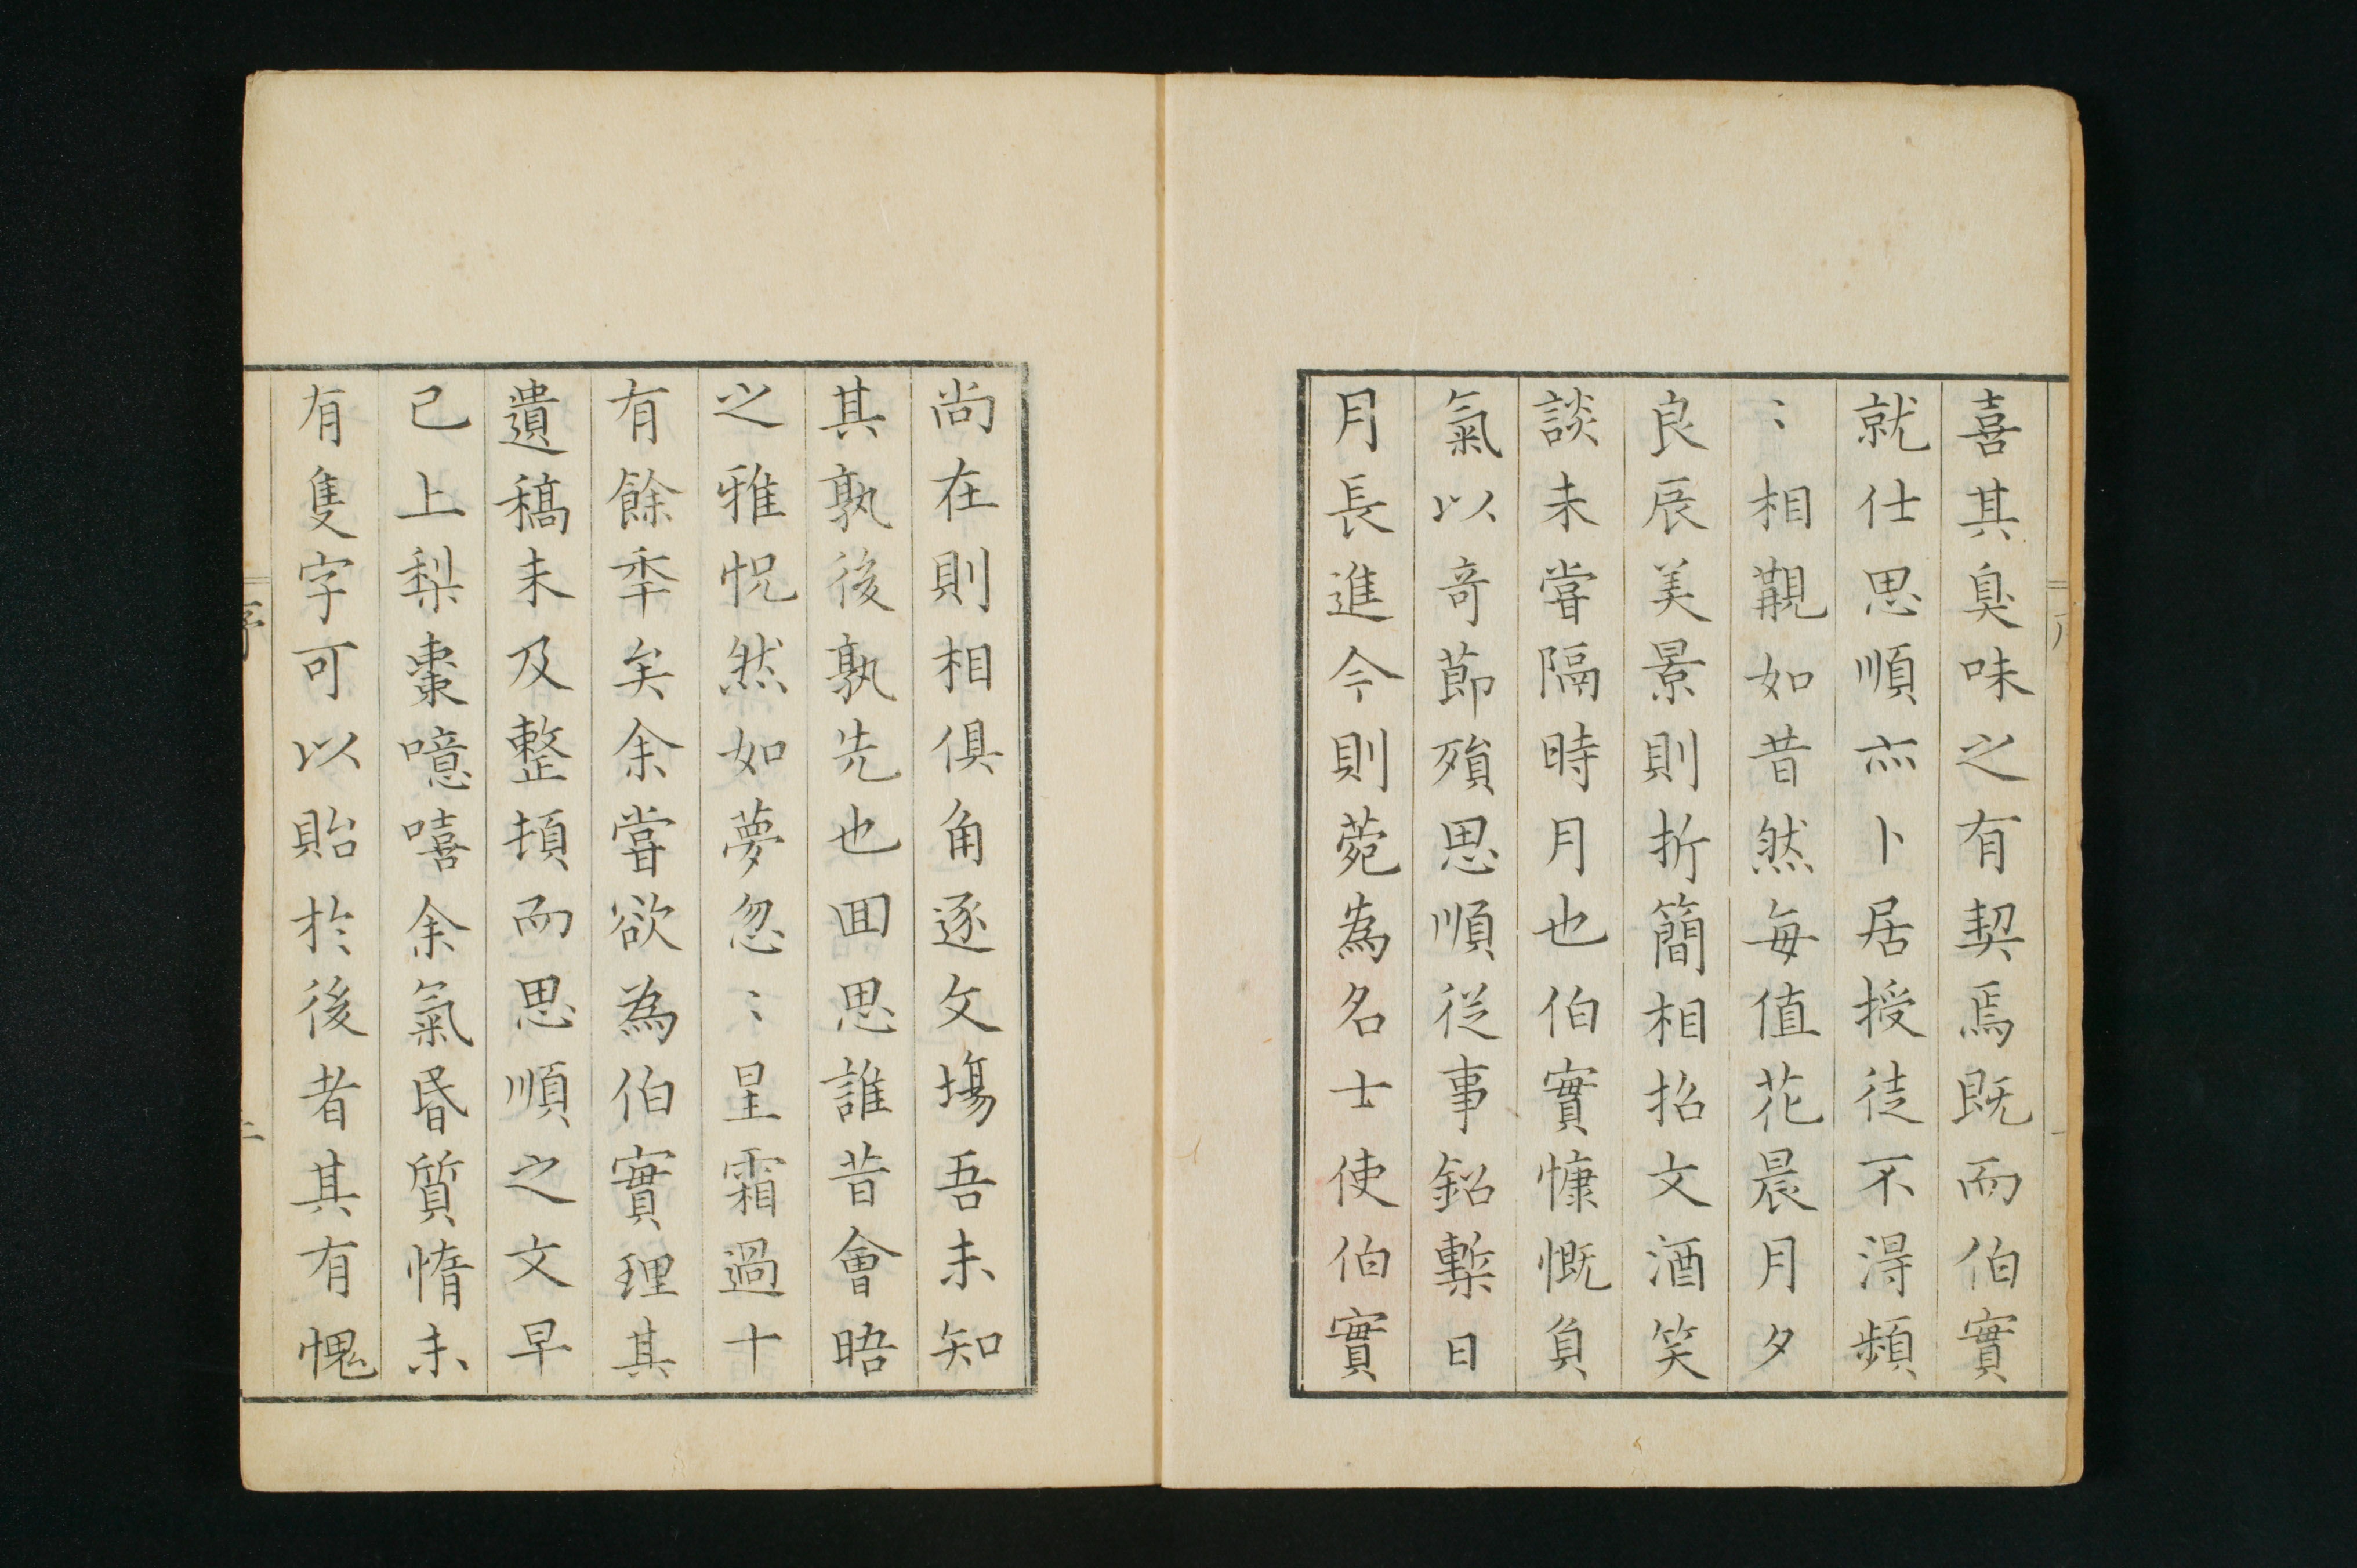 喜其臭味之有契焉既而伯實
就仕思順亦卜居授徒不得頻
〻相覯如昔然每值花晨月夕
良辰美景則折簡相招文酒笑
談未嘗隔時月也伯實慷慨負
氣以奇節殞思順從事鉛槧日
月長進今則蔚為名士使伯實
尚在則相俱角逐文塲吾未知
其孰後孰先也囬思誰昔會晤
之雅怳然如夢忽〻星霜過十
有餘秊矣余嘗欲為伯實理其
遺稿未及整頓而思順之文早
已上梨棗噫嘻余氣昏質惰未
有隻字可以貽於後者其有愧
序
二